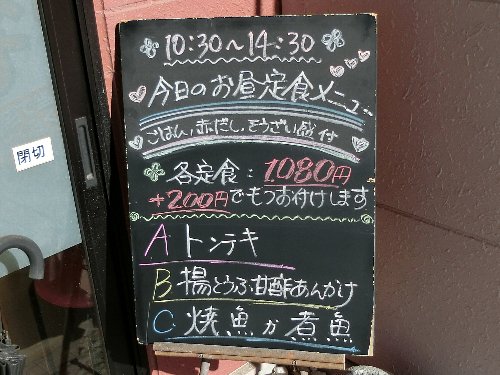 10:30〜14:30
今日のお昼定食メニュー
ごはん,赤だし,そうざい3点付
各定食:1080円
+200円でもつお付けします
A トンテキ
B 揚とうふ甘酢あんかけ
C 焼魚か煮魚
閉切